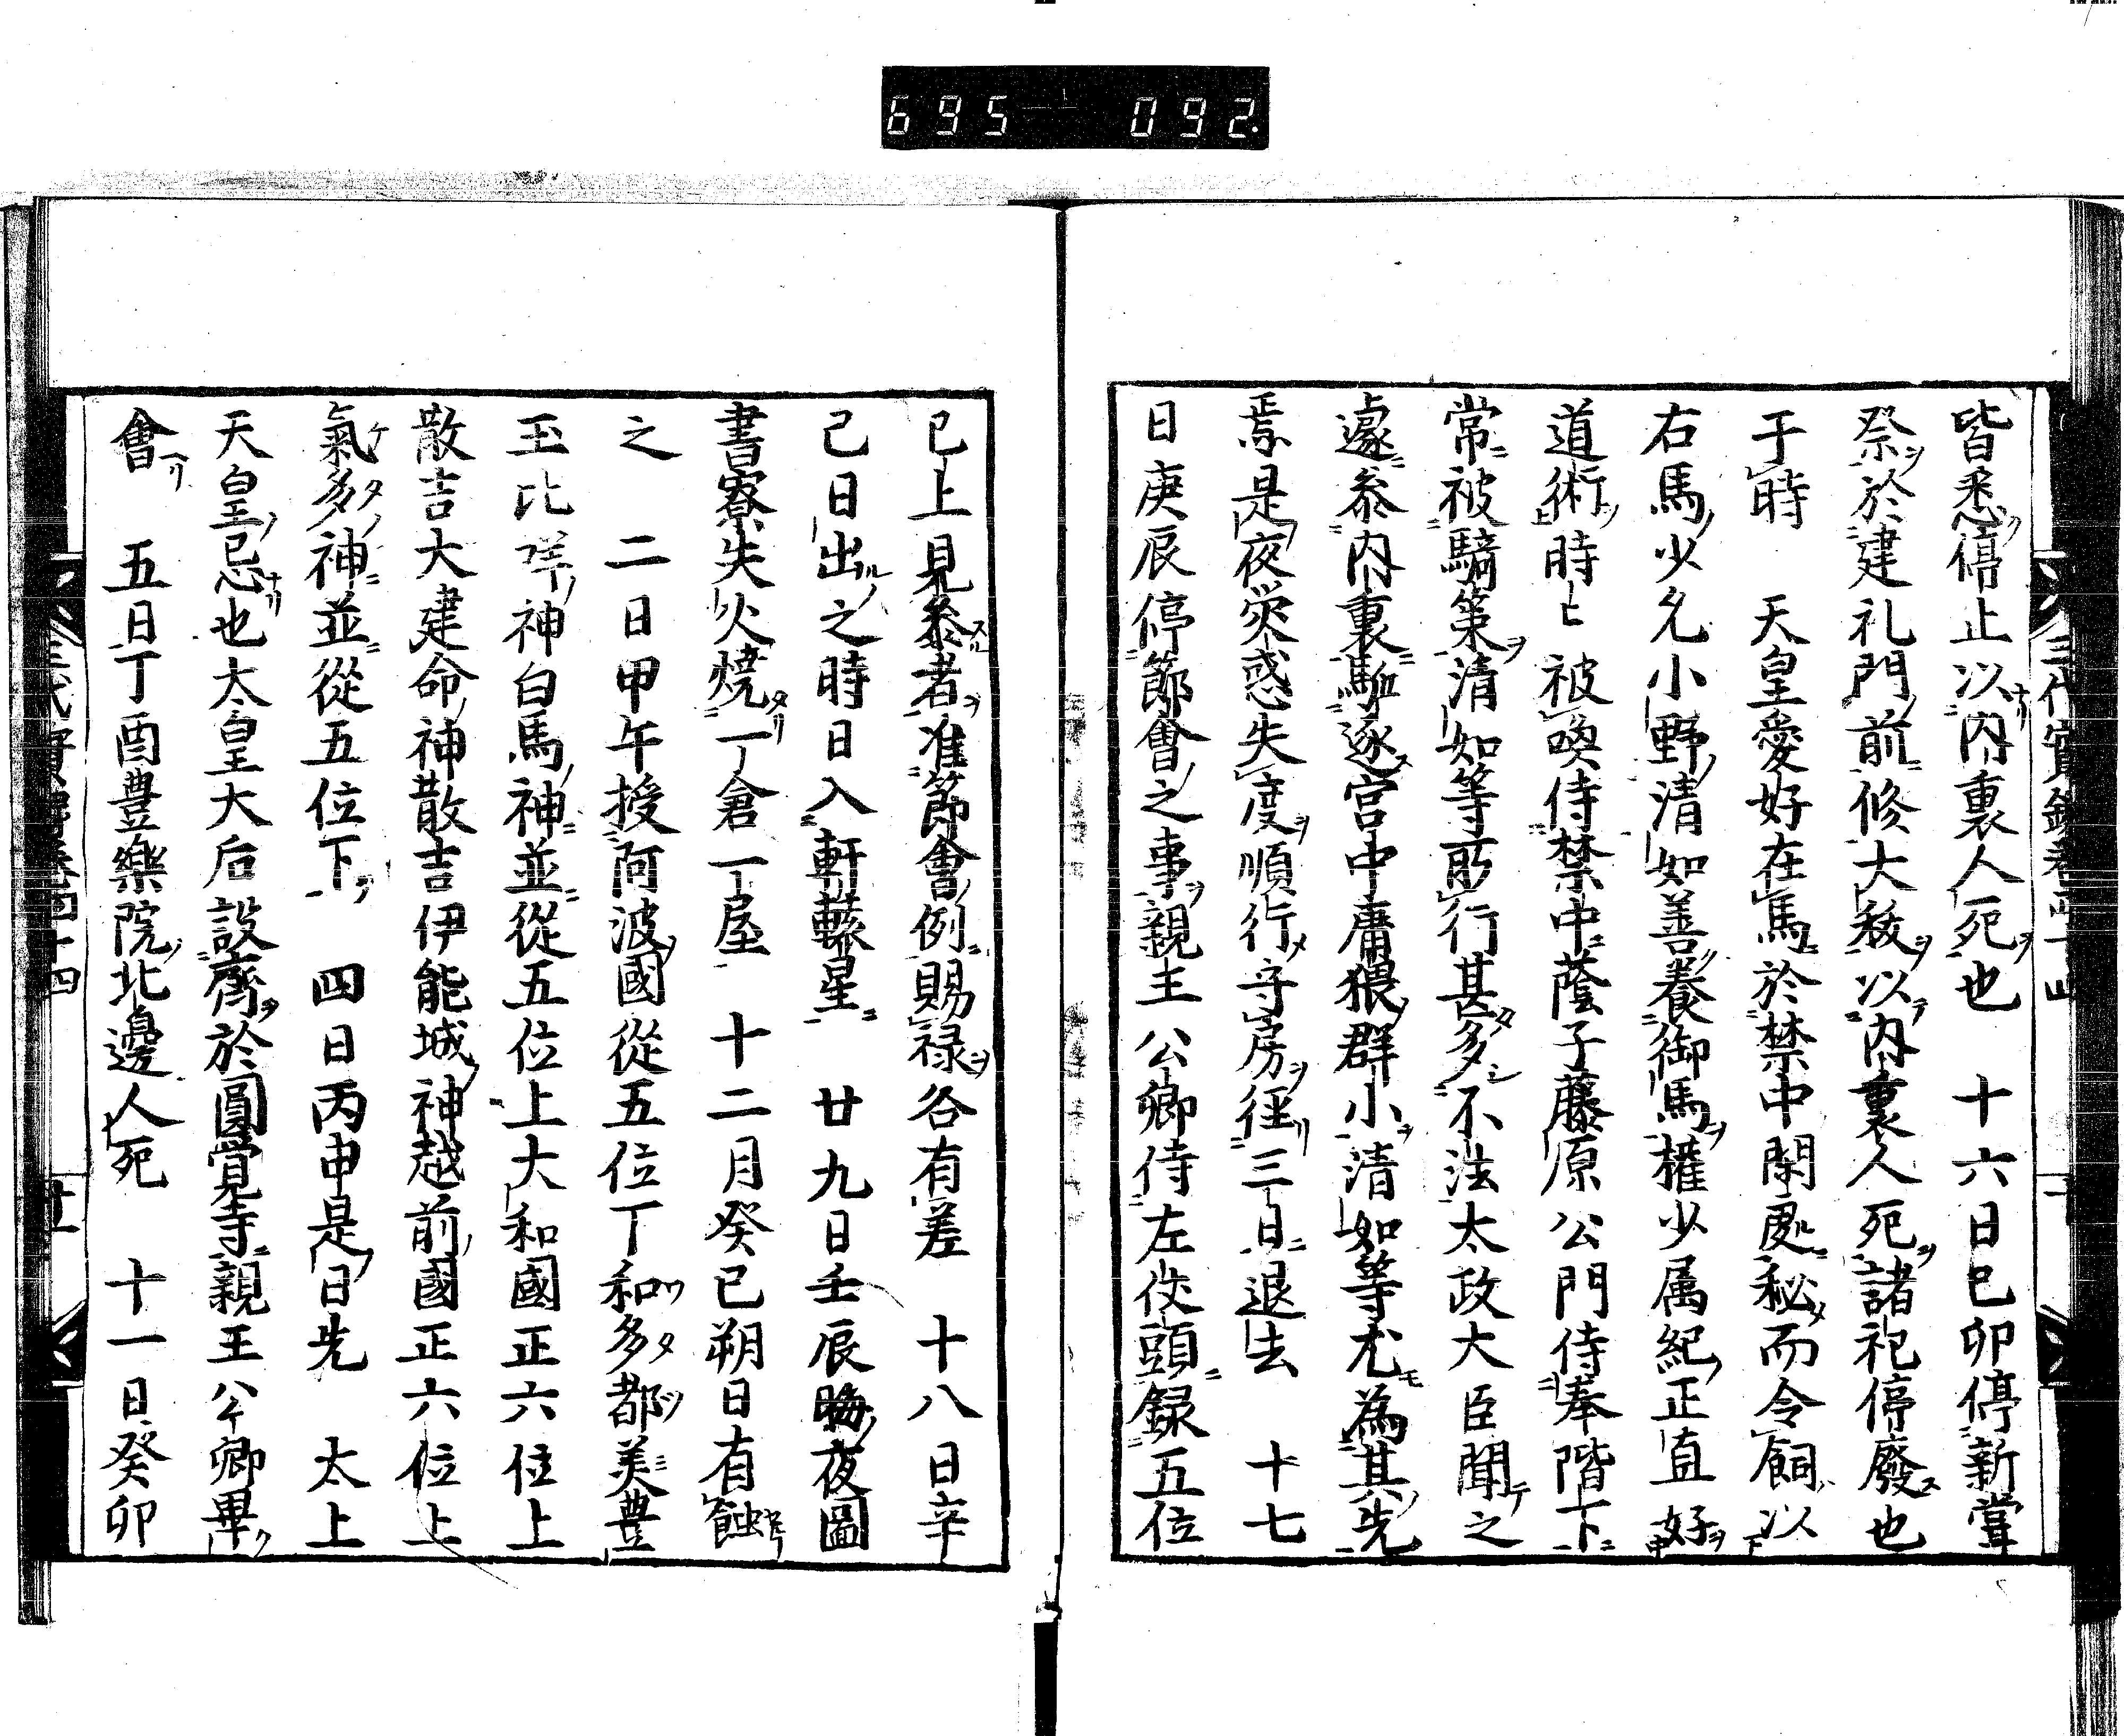 695 092.
皆悉停止以内裏人死也 十六日己卯停新嘗
祭於建礼門前修大祓以内裏人死諸祀停廢也
于時 天皇愛好在馬於禁中閑處秘而令飼以
右馬少允小野清如善養御馬權少属紀正直好
道術時〻被喚侍禁中蔭子藤原公門侍奉階下
常被騎策清如等所行甚多不法太政大臣聞之
遽参内裏駈逐宮中庸猥群小清如等尤為其先
焉是夜熒惑失度順行守房徑三日退去 十七
日庚辰停節會之事親王公卿侍左仗頭録五位
已上見参者准節會例賜禄各有差 十八日辛
己日出之時日入軒轅星 廿九日壬辰晦夜圖
書寮失火燒一丁倉一丁屋 十二月癸巳朔日有蝕
之 二日甲午授阿波國從五位下和多都美豊
玉比咩神白馬神並從五位上大和國正六位上
散吉大建命神散吉伊能城神越前國正六位上
氣多神並從五位下 四日丙申是日先 太上
天皇忌也太皇大后設齋於圓覚寺親王公卿畢
會 五日丁酉豊樂院北邊人死 十一日癸卯